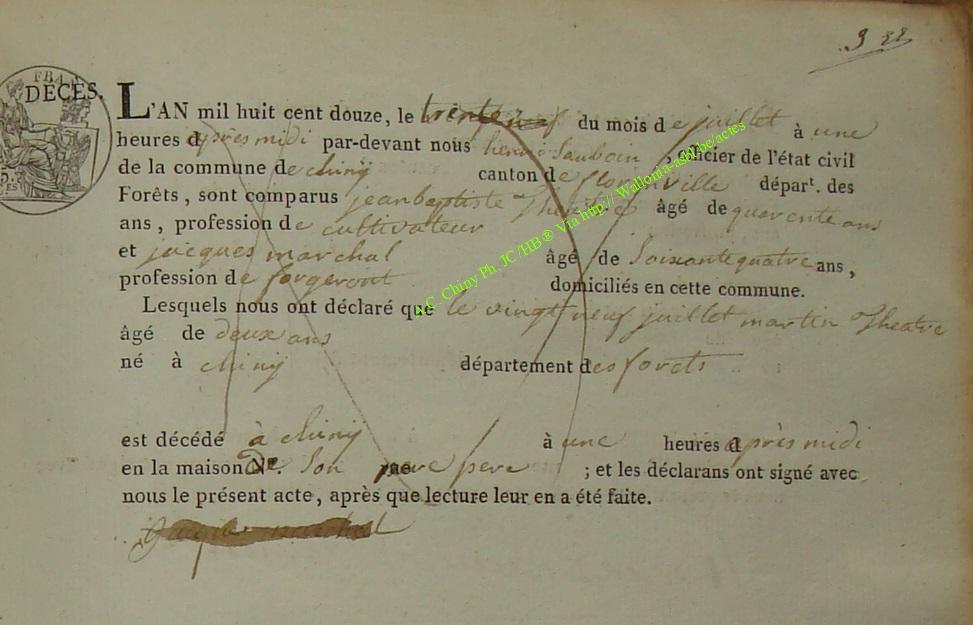 9 22
FRA
DÉCÈS.
L'AN mil huit cent douze, le trente du mois de juillet à une
heures d après midi par-devant nous henri Sauboin, officier de l'état civil
de la commune de chiny canton de florenville départ. des
Forêts, sont comparus jean baptiste Theatre âgé de quarente ans
ans, profession de cultivateur
et jacques marchal âgé de Soixante quatre ans,
profession de forgeront domiciliés en cette commune.
Lesquels nous ont déclaré que le vingt neuf juillet martin Theatre
âgé de deux ans
né à chiny département des forets
est décédé à chiny à une heures d après midi
en la maison De Son pere ; et les déclarans ont signé avec
nous le présent acte, après que lecture leur en a été faite.
E.C. Chiny Ph. JC/HB® Via http://Wallonia-asbl.be/actes